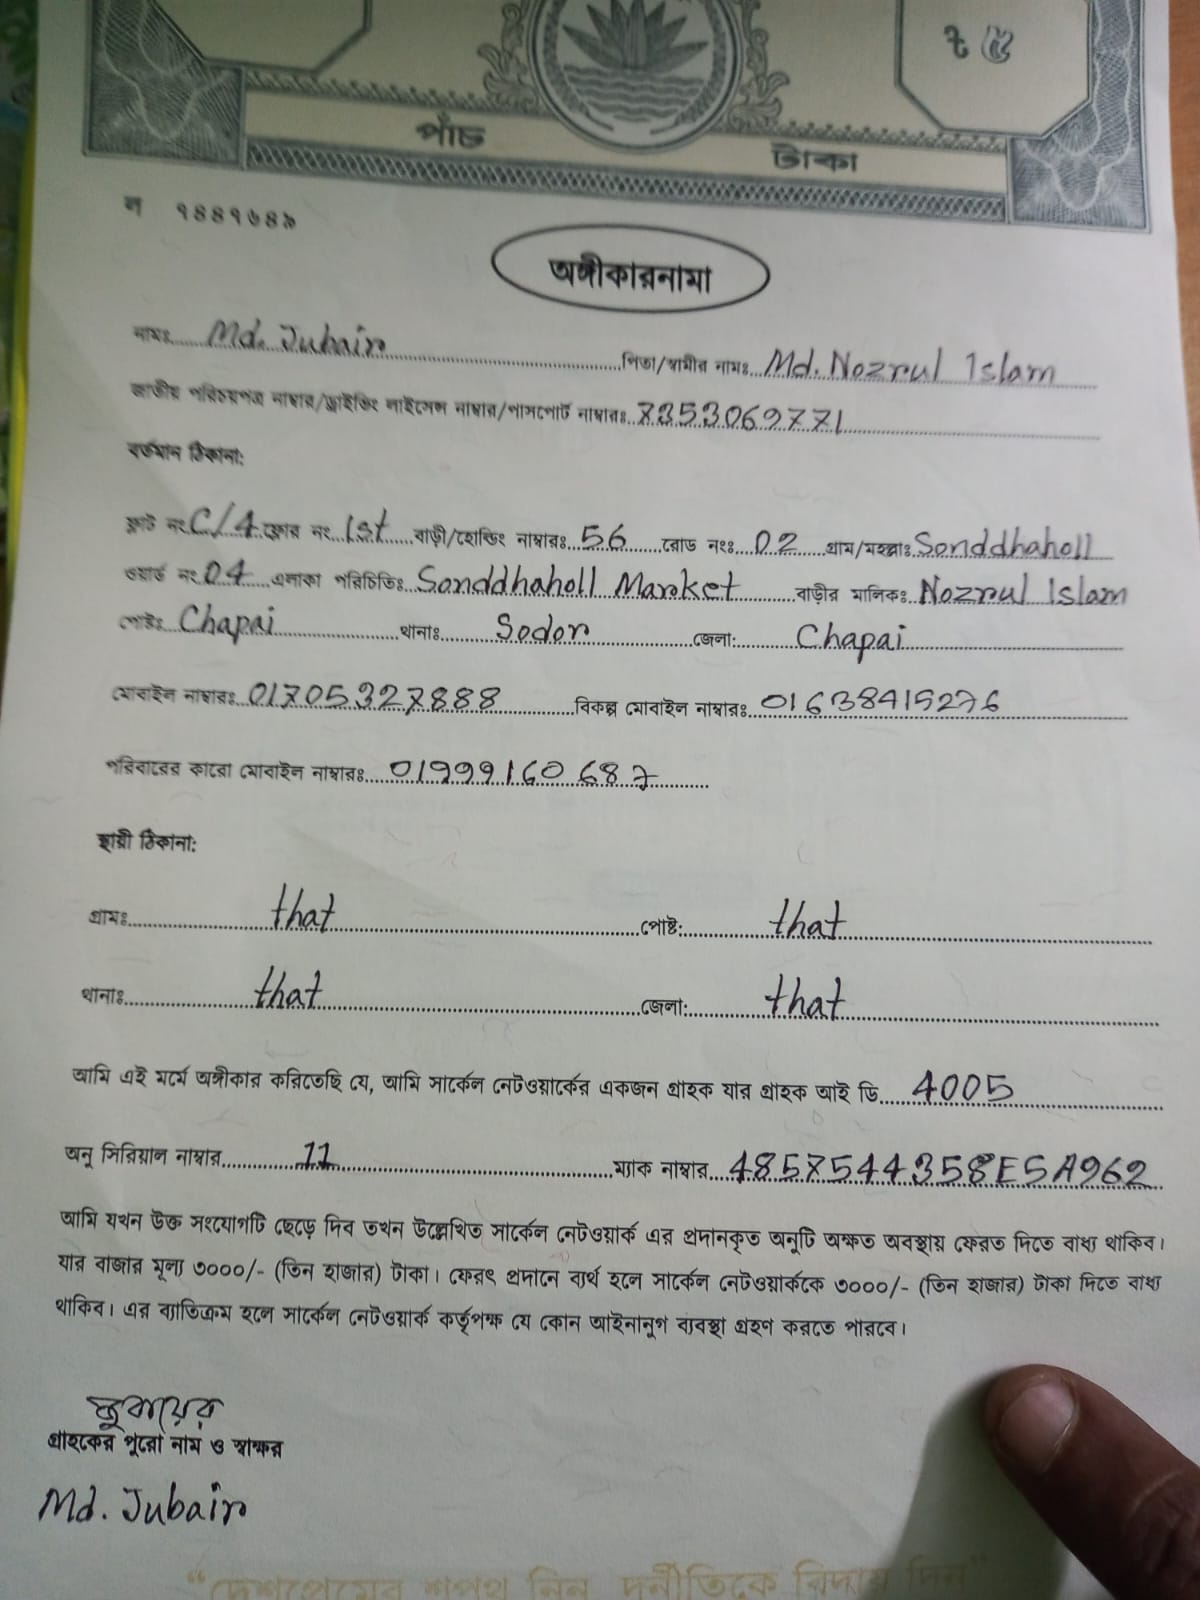 ট ৫
পাঁচ টাকা
ন ৭৪৪৭৬৪৯
অঙ্গীকারনামা
নামঃ Md. Jubair পিতা/স্বামীর নামঃ Md. Nozrul Islam
জাতীয় পরিচয়পত্র নাম্বার/ড্রাইভিং লাইসেন্স নাম্বার/পাসপোর্ট নাম্বারঃ 7353069771
বর্তমান ঠিকানা:
ফ্লাট নং C/4 ফ্লোর নং 1st বাড়ী/হোল্ডিং নাম্বারঃ 56 রোড নংঃ 02 গ্রাম/মহল্লাঃ Sonddhaholl
ওয়ার্ড নং 04 এলাকা পরিচিতিঃ Sonddhaholl Market বাড়ীর মালিকঃ Nozrul Islam
পোষ্টঃ Chapai থানাঃ Sodor জেলা: Chapai
মোবাইল নাম্বারঃ 01705327888 বিকল্প মোবাইল নাম্বারঃ 01638415276
পরিবারের কারো মোবাইল নাম্বারঃ 01999160687
স্থায়ী ঠিকানা:
গ্রামঃ that পোষ্ট: that
থানাঃ that জেলা: that
আমি এই মর্মে অঙ্গীকার করিতেছি যে, আমি সার্কেল নেটওয়ার্কের একজন গ্রাহক যার গ্রাহক আই ডি 4005
অনু সিরিয়াল নাম্বার 11 ম্যাক নাম্বার 4857544358E5A962
আমি যখন উক্ত সংযোগটি ছেড়ে দিব তখন উল্লেখিত সার্কেল নেটওয়ার্ক এর প্রদানকৃত অনুটি অক্ষত অবস্থায় ফেরত দিতে বাধ্য থাকিব।
যার বাজার মূল্য ৩০০০/- (তিন হাজার) টাকা। ফেরৎ প্রদানে ব্যর্থ হলে সার্কেল নেটওয়ার্ককে ৩০০০/- (তিন হাজার) টাকা দিতে বাধ্য
থাকিব। এর ব্যাতিক্রম হলে সার্কেল নেটওয়ার্ক কর্তৃপক্ষ যে কোন আইনানুগ ব্যবস্থা গ্রহণ করতে পারবে।
জুবায়ের
গ্রাহকের পুরো নাম ও স্বাক্ষর
Md. Jubair
“দেশপ্রেমের শপথ নিন, দুর্নীতিকে বিদায় দিন”